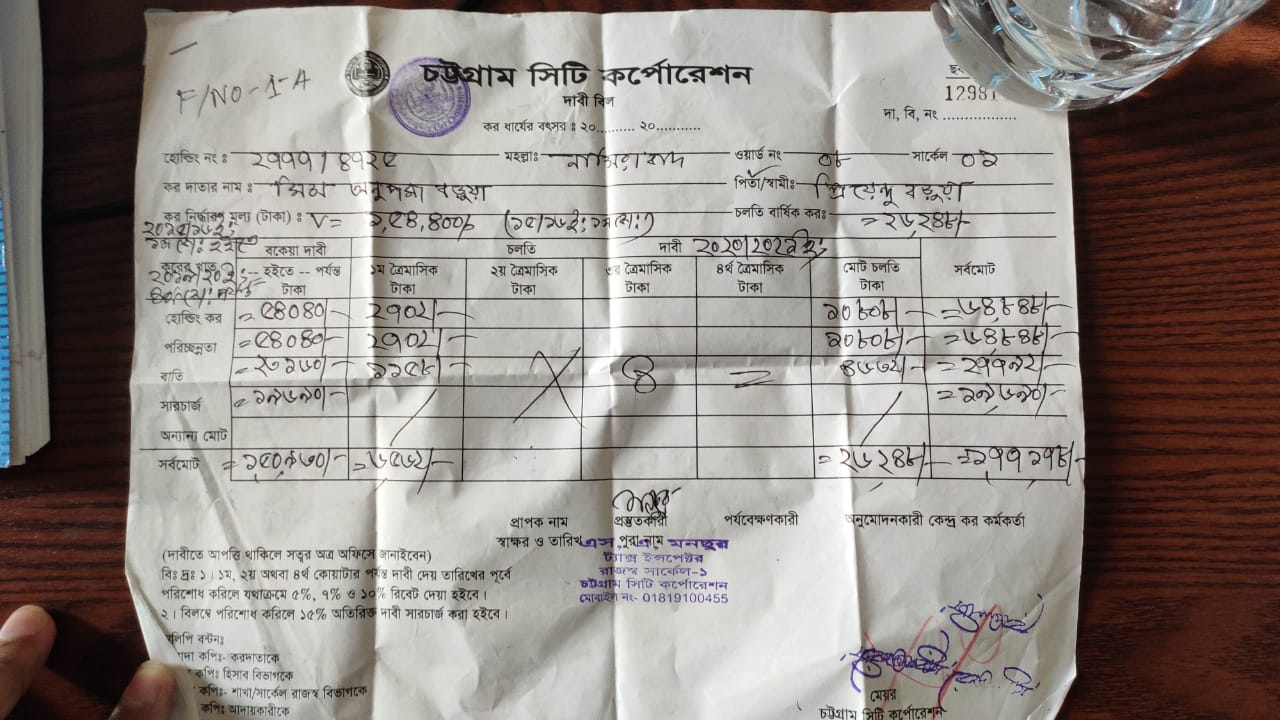 F/NO-1-A
চট্টগ্রাম সিটি কর্পোরেশন
দাবী বিল
কর ধার্যের বৎসর ঃ ২০.......... ২০...........
1298
দা, বি, নং ..................
হোল্ডিং নং ঃ ২৭৭৭/৪৭২৫ মহল্লাঃ নাসিরাবাদ ওয়ার্ড নং ০৮ সার্কেল ০১
কর দাতার নাম ঃ মিস অনুপমা বড়ুয়া পিতা/স্বামীঃ প্রিয়েন্দু বড়ুয়া
কর নির্দ্ধারণ মূল্য (টাকা) ঃ V= ১,৫৪,৪০০/- চলতি বার্ষিক করঃ =২৬,২৪৮/-
বকেয়া দাবী চলতি দাবী ২০২০/২০২১
হইতে -- পর্যন্ত টাকা ১ম ত্রৈমাসিক টাকা ২য় ত্রৈমাসিক টাকা ৩য় ত্রৈমাসিক টাকা ৪র্থ ত্রৈমাসিক টাকা মোট চলতি টাকা সর্বমোট
হোল্ডিং কর =৫৪০৪০/- ২৭০২/- ১০৮০৮/- =৬৪,৮৪৮/-
পরিচ্ছন্নতা =৫৪০৪০/- ২৭০২/- ১০৮০৮/- =৬৪৮৪৮/-
বাতি =২৩১৬০/- ১১৫৮/- ৪৬৩২/- =২৭৭৯২/-
সারচার্জ =১৯৬৯০/- =১৯৬৯০/-
অন্যান্য মোট
সর্বমোট =১৫০৯৩০/- =৬৫৬২/- =২৬২৪৮/- =১৭৭১৭৮/-
প্রাপক নাম প্রস্তুতকারী পর্যবেক্ষণকারী অনুমোদনকারী কেন্দ্র কর কর্মকর্তা
স্বাক্ষর ও তারিখ পুরা নাম
মনছুর
ট্যাক্স ইন্সপেক্টর
রাজস্ব সার্কেল-১
চট্টগ্রাম সিটি কর্পোরেশন
মোবাইল নং- 01819100455
(দাবীতে আপত্তি থাকিলে সত্বর অত্র অফিসে জানাইবেন)
বিঃ দ্রঃ ১। ১ম, ২য় অথবা ৪র্থ কোয়াটার পর্যন্ত দাবী দেয় তারিখের পূর্বে
পরিশোধ করিলে যথাক্রমে ৫%, ৭% ও ১০% রিবেট দেয়া হইবে।
২। বিলম্বে পরিশোধ করিলে ১৫% অতিরিক্ত দাবী সারচার্জ করা হইবে।
লিপি বন্টনঃ
কপিঃ- করদাতাকে
কপিঃ হিসাব বিভাগকে
কপিঃ- শাখা/সার্কেল রাজস্ব বিভাগকে
কপিঃ আদায়কারীকে
মেয়র
চট্টগ্রাম সিটি কর্পোরেশন